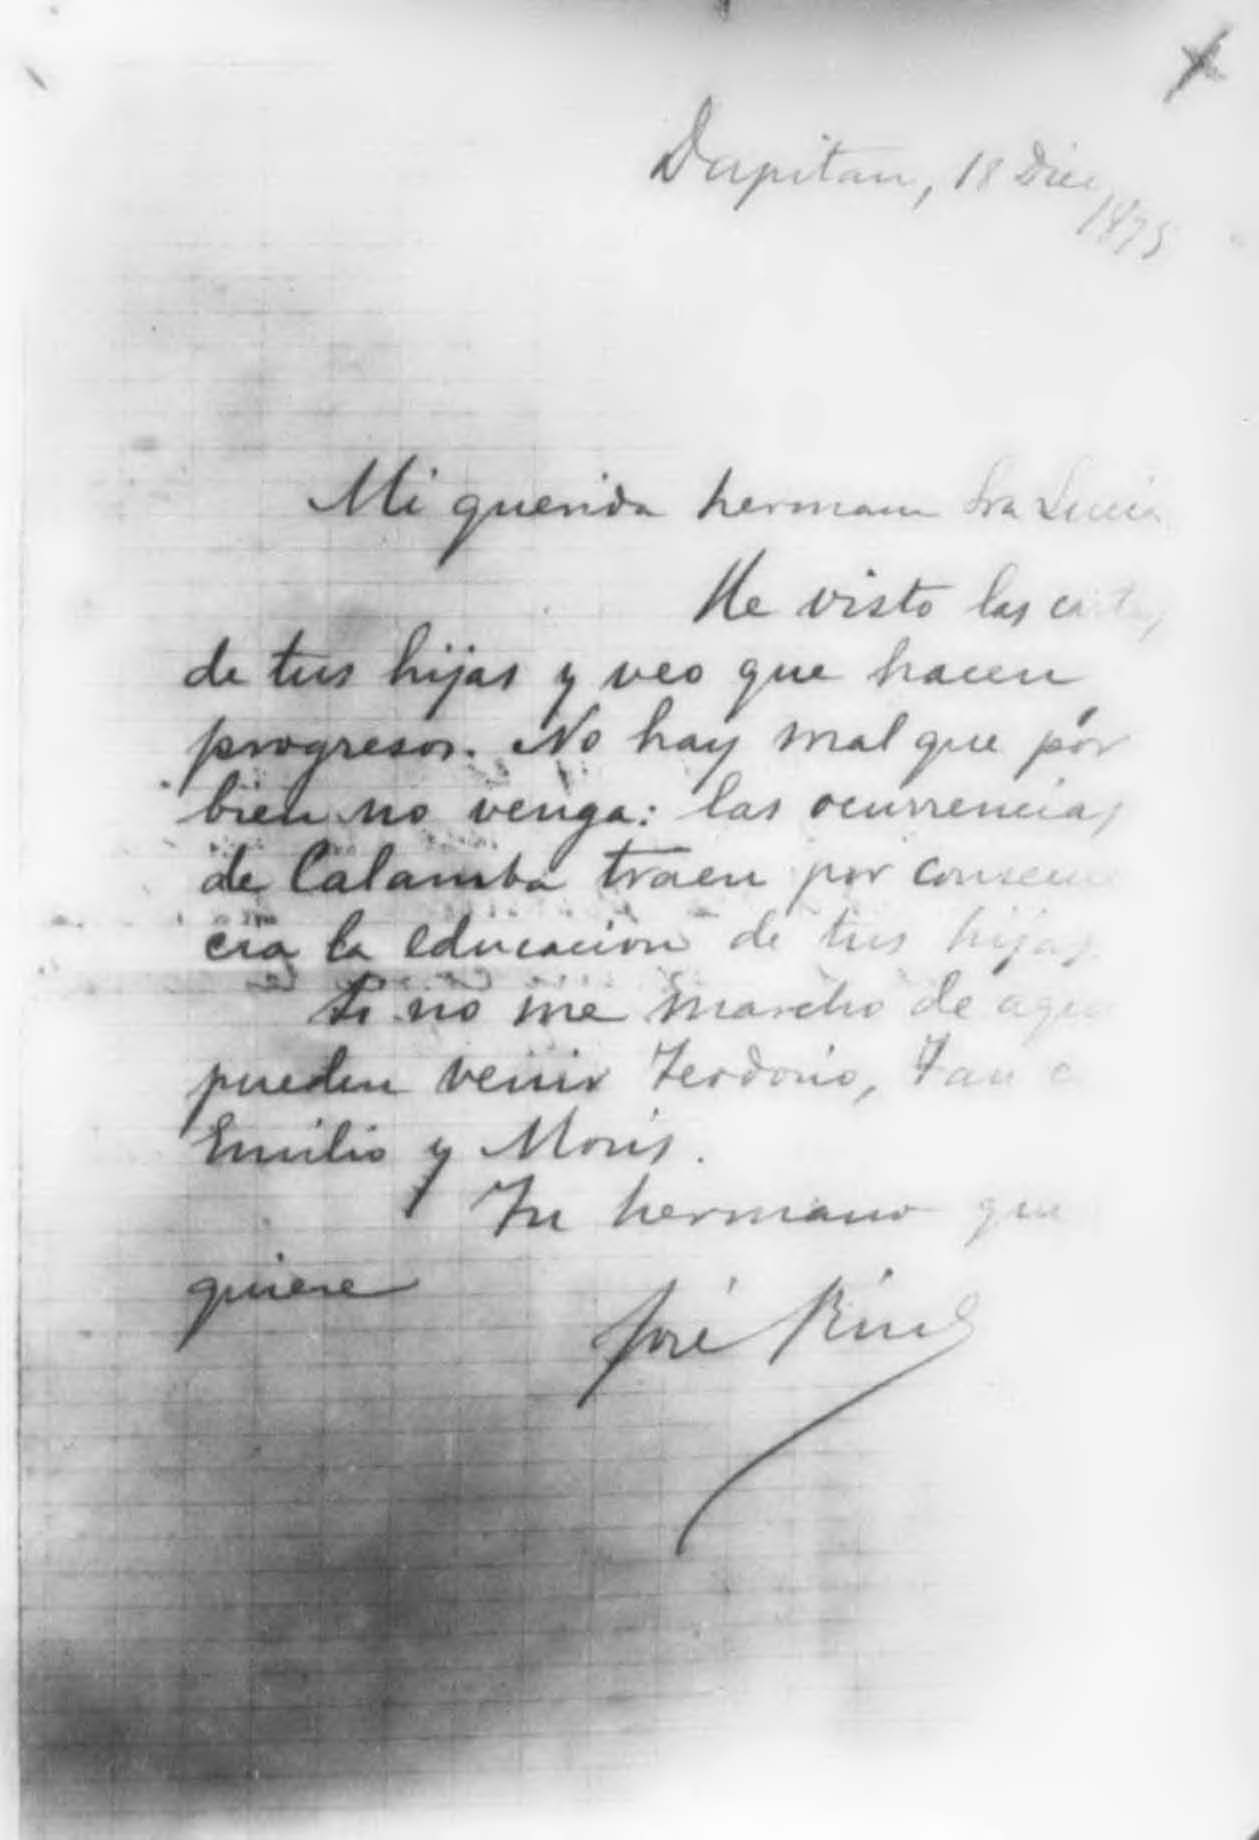 Dapitan, 18 Dic
1895
Mi querida hermana Sra Lucia
He visto las cartas
de tus hijas y veo que hacen
progresos. No hay mal que por
bien no venga: las ocurrencias
de Calamba traen por consecuen
cia la educacion de tus hijas.
Si no me marcho de aqui
pueden venir Teodosio, Tan
Emilio y Moris.
Tu hermano que
quiere
José Rizal